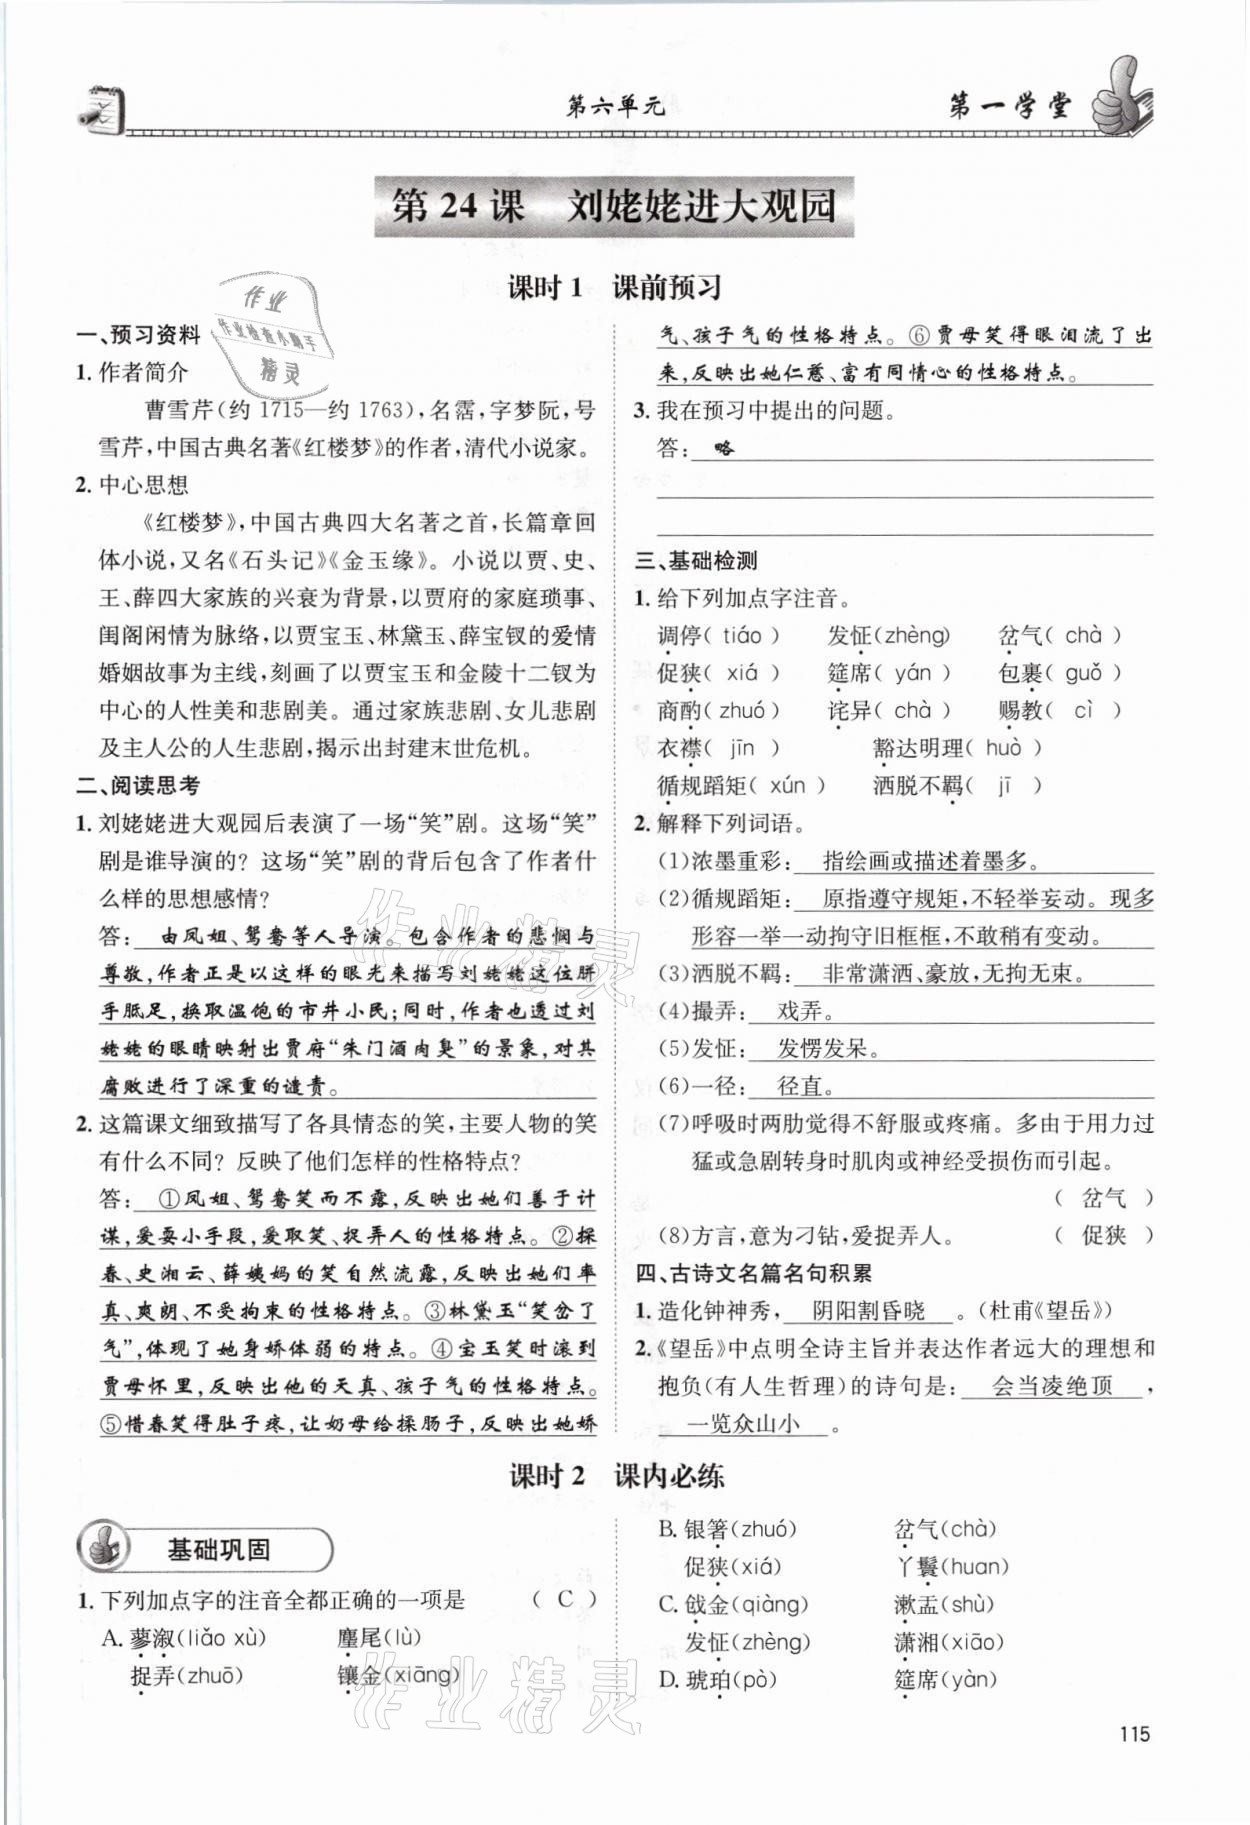 第六单元
第一学堂
第 24 课　刘姥姥进大观园
课时 1　课前预习
一、预习资料
1. 作者简介
曹雪芹(约 1715—约 1763),名霑,字梦阮,号
雪芹,中国古典名著《红楼梦》的作者,清代小说家。
2. 中心思想
《红楼梦》,中国古典四大名著之首,长篇章回
体小说,又名《石头记》《金玉缘》。小说以贾、史、
王、薛四大家族的兴衰为背景,以贾府的家庭琐事、
闺阁闲情为脉络,以贾宝玉、林黛玉、薛宝钗的爱情
婚姻故事为主线,刻画了以贾宝玉和金陵十二钗为
中心的人性美和悲剧美。通过家族悲剧、女儿悲剧
及主人公的人生悲剧,揭示出封建末世危机。
二、阅读思考
1. 刘姥姥进大观园后表演了一场“笑”剧。这场“笑”
剧是谁导演的? 这场“笑”剧的背后包含了作者什
么样的思想感情?
答: 由凤姐、鸳鸯等人导演。包含作者的悲悯与
尊敬,作者正是以这样的眼光来描写刘姥姥这位胼
手胝足,换取温饱的市井小民;同时,作者也透过刘
姥姥的眼睛映射出贾府“朱门酒肉臭”的景象,对其
腐败进行了深重的谴责。
2. 这篇课文细致描写了各具情态的笑,主要人物的笑
有什么不同? 反映了他们怎样的性格特点?
答: ①凤姐、鸳鸯笑而不露,反映出她们善于计
谋,爱耍小手段,爱取笑、捉弄人的性格特点。②探
春、史湘云、薛姨妈的笑自然流露,反映出她们率
真、爽朗、不受拘束的性格特点。③林黛玉“笑岔了
气”,体现了她身娇体弱的特点。④宝玉笑时滚到
贾母怀里,反映出他的天真、孩子气的性格特点。
⑤惜春笑得肚子疼,让奶母给揉肠子,反映出她娇
气、孩子气的性格特点。⑥贾母笑得眼泪流了出
来,反映出她仁慈、富有同情心的性格特点。
3. 我在预习中提出的问题。
答: 略
三、基础检测
1. 给下列加点字注音。
调停( tiáo )　发怔(zhèng)　岔气( chà )
促狭( xiá )　筵席( yán )　包裹( guǒ )
商酌( zhuó )　诧异( chà )　赐教( cì )
衣襟( jīn )　豁达明理( huò )
循规蹈矩( xún )　洒脱不羁( jī )
2. 解释下列词语。
(1)浓墨重彩: 指绘画或描述着墨多。
(2)循规蹈矩: 原指遵守规矩,不轻举妄动。现多
形容一举一动拘守旧框框,不敢稍有变动。
(3)洒脱不羁: 非常潇洒、豪放,无拘无束。
(4)撮弄: 戏弄。
(5)发怔: 发愣发呆。
(6)一径: 径直。
(7)呼吸时两肋觉得不舒服或疼痛。多由于用力过
猛或急剧转身时肌肉或神经受损伤而引起。
( 岔气 )
(8)方言,意为刁钻,爱捉弄人。 ( 促狭 )
四、古诗文名篇名句积累
1. 造化钟神秀, 阴阳割昏晓 。(杜甫《望岳》)
2.《望岳》中点明全诗主旨并表达作者远大的理想和
抱负(有人生哲理)的诗句是: 会当凌绝顶 ,
一览众山小 。
课时 2　课内必练
基础巩固
1. 下列加点字的注音全都正确的一项是 ( C )
A. 蓼溆(liǎo xù)　麈尾(lù)
捉弄(zhuō)　镶金(xiāng)
B. 银箸(zhuó)　岔气(chà)
促狭(xiá)　丫鬟(huan)
C. 戗金(qiàng)　漱盂(shù)
发怔(zhèng)　潇湘(xiāo)
D. 琥珀(pò)　筵席(yàn)
115
作业
作业检查小助手
精灵
作业精灵
作业精灵